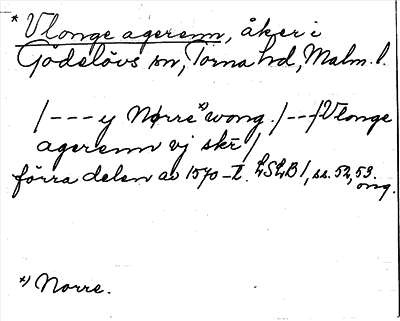 * Vlonge agerenn, åker i
Gödelövs sn, Torna hd, Malm. l.
/---y Nørre*) wong. /---/Vlonge
agerenn vj skr /
förra delen av 1570-t. LSLB 1, ss. 52, 53.
orig.
*) Norre.